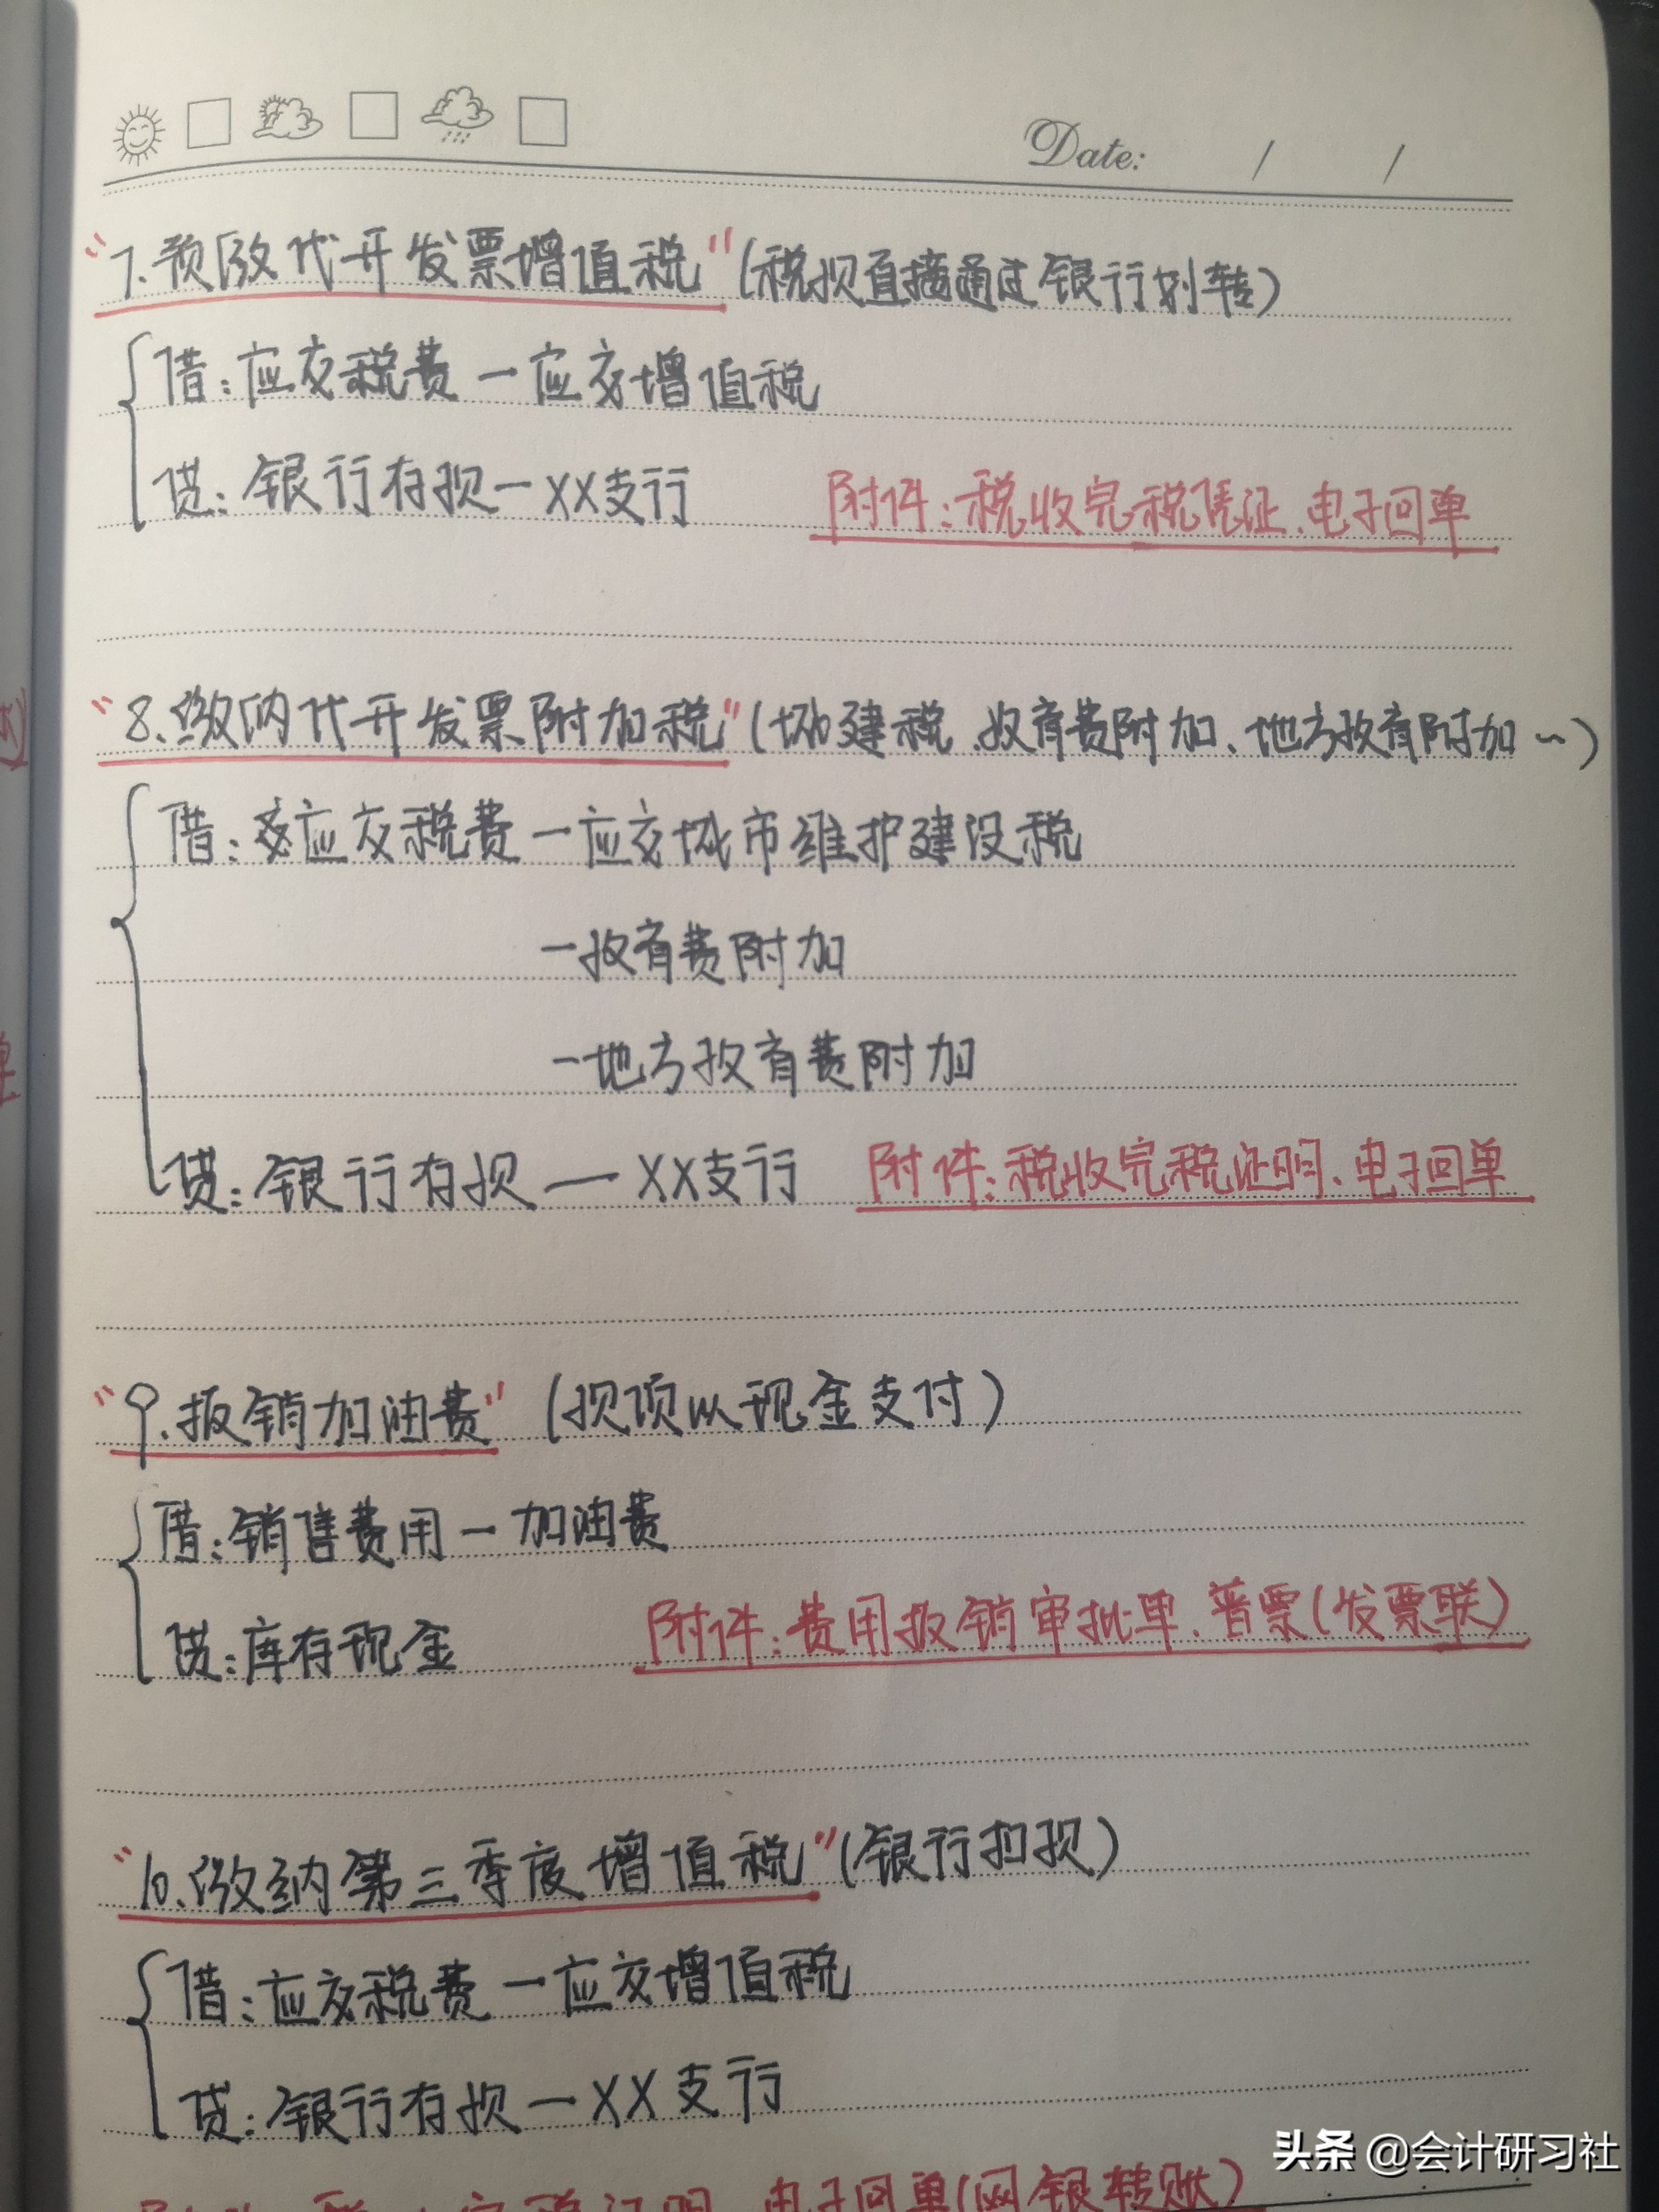 Date: / /
"7.预缴代开发票增值税"(税款直接通过银行划转)
借:应交税费一应交增值税
贷:银行存款一XX支行 附件:税收完税凭证、电子回单
"8.缴纳代开发票附加税"(城建税、教育费附加、地方教育附加~)
借:应交税费一应交城市维护建设税
一教育费附加
一地方教育费附加
贷:银行存款一XX支行 附件:税收完税证明、电子回单
"9.报销加油费"(款项以现金支付)
借:销售费用一加油费
贷:库存现金 附件:费用报销审批单、普票(发票联)
"10.缴纳第三季度增值税"(银行扣款)
借:应交税费一应交增值税
贷:银行存款一XX支行
头条 @会计研习社
电子回单(网银转账)